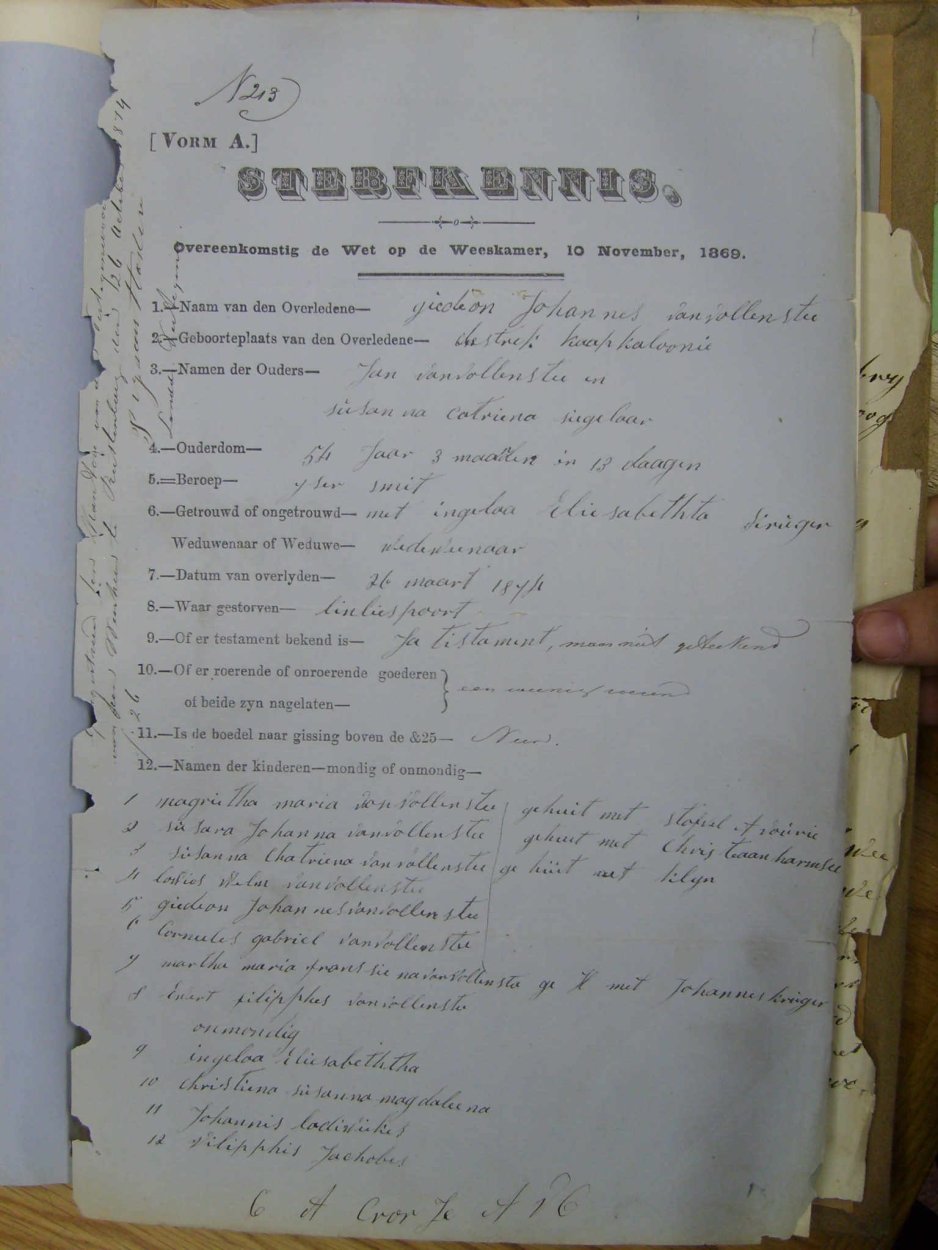 N 213
[VORM A.]
STERFKENNIS,
Overeenkomstig de Wet op de Weeskamer, 10 November, 1869.
1.—Naam van den Overledene— giedeon Johannes vanvollenstee
2.—Geboorteplaats van den Overledene— distrik kaapkaloonie
3.—Namen der Ouders— Jan vanvollenstee en
susanna catriena siegelaar
4.—Ouderdom— 54 Jaar 3 maaden in 13 daagen
5.—Beroep— yser smit
6.—Getrouwd of ongetrouwd— met ingeloa Eliesabeththa kruger
Weduwenaar of Weduwe— wedewenaar
7.—Datum van overlyden— 26 maart 1874
8.—Waar gestorven— linliespoort
9.—Of er testament bekend is— Ja tistament, maar niet geteekend
10.—Of er roerende of onroerende goederen
of beide zyn nagelaten— een weinig
11.—Is de boedel naar gissing boven de &25— Neen.
12.—Namen der kinderen—mondig of onmondig—
1 magrietha maria vanvollenstee gehuit met stofel
2 susara Johanna vanvollenstee gehuit met Christiaan harmse
3 susanna Chatriena vanvollenstee gehuit met klyn
4 lowies Welm vanvollenstee
5 gideon Johannes vanvollenstee
6 Cornneles gabriel vanvollenstee
7 martha maria fransiena vanvollenstee ge H met Johannes kruger
8 Evert filipphes vanvollenste
onmondig
9 ingeloa Eliesabeththa
10 christiena susanna magdaleena
11 Johannis lodiwikes
12 filipphis Jachobes
C A CronJe A